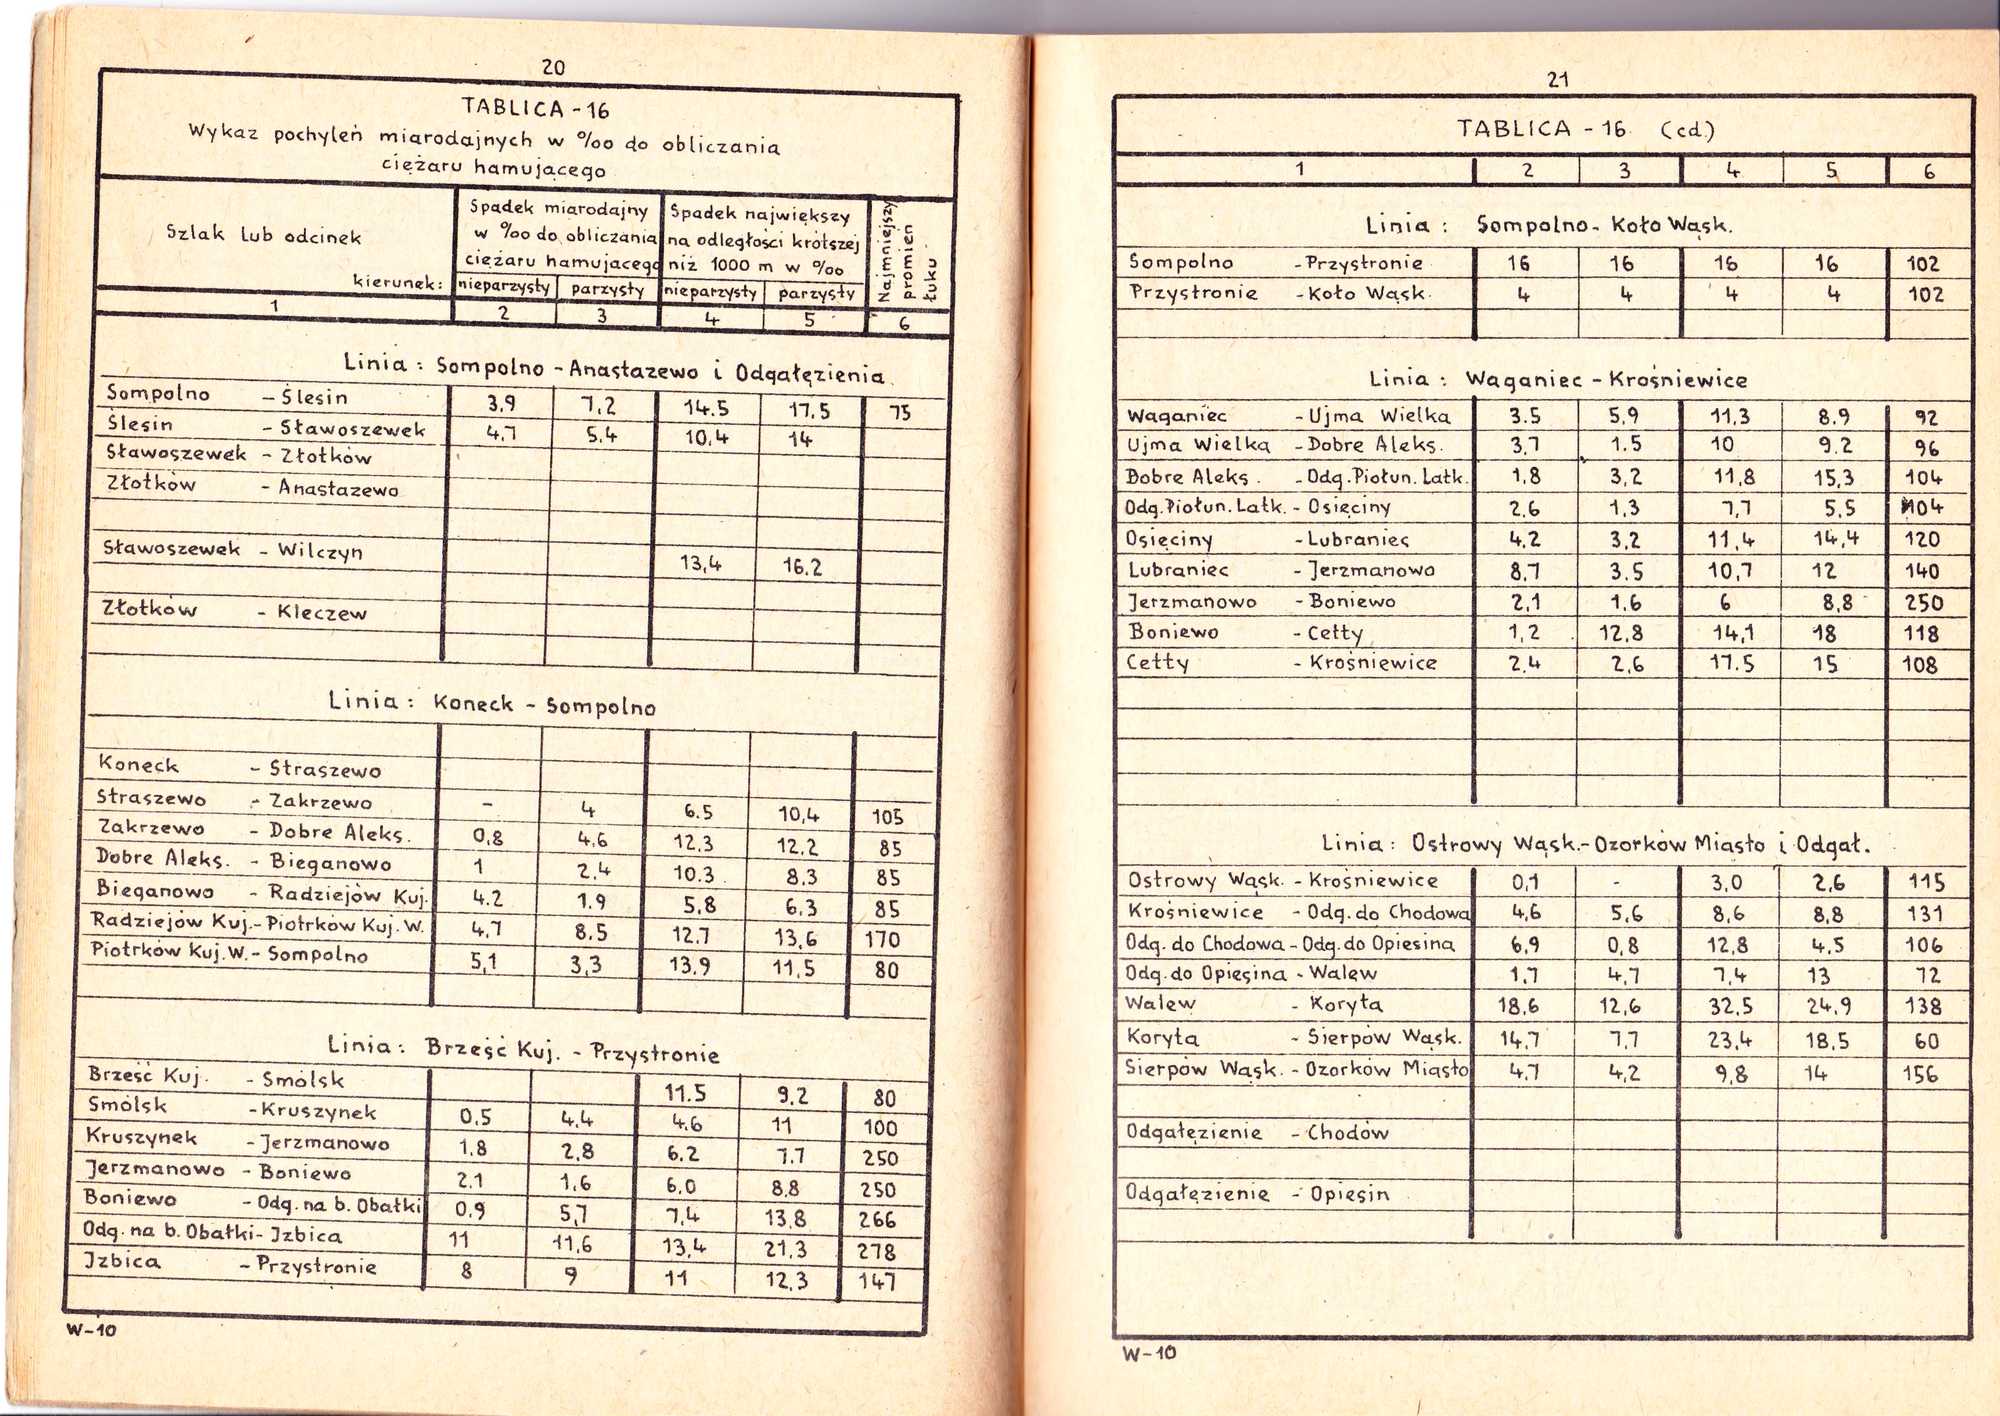 20
TABLICA - 16
Wykaz pochyleń miarodajnych w ‰ do obliczania
ciężaru hamującego
Szlak lub odcinek
kierunek:
Spadek miarodajny
w ‰ do obliczania
ciężaru hamującego
Spadek największy
na odległości krótszej
niż 1000 m w ‰
Najmniejszy
promień
łuku
nieparzysty parzysty nieparzysty parzysty
1 2 3 4 5 6
Linia : Sompolno - Anastazewo i Odgałęzienia
Sompolno - Ślesin 3,9 7,2 14.5 17,5 75
Ślesin - Sławoszewek 4,7 5,4 10,4 14
Sławoszewek - Złotków
Złotków - Anastazewo
Sławoszewek - Wilczyn 13,4 16.2
Złotków - Kleczew
Linia : Koneck - Sompolno
Koneck - Straszewo
Straszewo - Zakrzewo - 4 6.5 10,4 105
Zakrzewo - Dobre Aleks. 0,8 4,6 12,3 12.2 85
Dobre Aleks. - Bieganowo 1 2,4 10.3 8,3 85
Bieganowo - Radziejów Kuj. 4.2 1,9 5,8 6,3 85
Radziejów Kuj. - Piotrków Kuj. W. 4,7 8,5 12,7 13,6 170
Piotrków Kuj.W. - Sompolno 5,1 3,3 13.9 11,5 80
Linia : Brześć Kuj. - Przystronie
Brześć Kuj. - Smólsk 11.5 9.2 80
Smólsk - Kruszynek 0,5 4,4 4,6 11 100
Kruszynek - Jerzmanowo 1,8 2,8 6.2 7.7 250
Jerzmanowo - Boniewo 2,1 1,6 6,0 8,8 250
Boniewo - Odg. na b. Obałki 0,9 5,7 7,4 13,8 266
Odg. na b. Obałki - Izbica 11 11,6 13,4 21,3 278
Izbica - Przystronie 8 9 11 12,3 147
W-10
21
TABLICA - 16 (cd.)
1 2 3 4 5 6
Linia : Sompolno - Koło Wąsk.
Sompolno - Przystronie 16 16 16 16 102
Przystronie - Koło Wąsk. 4 4 4 4 102
Linia : Waganiec - Krośniewice
Waganiec - Ujma Wielka 3.5 5,9 11,3 8.9 92
Ujma Wielka - Dobre Aleks. 3,7 1.5 10 9.2 96
Dobre Aleks. - Odg. Piołun. Latk. 1,8 3,2 11,8 15,3 104
Odg. Piołun. Latk. - Osięciny 2,6 1,3 7,7 5,5 104
Osięciny - Lubraniec 4,2 3,2 11,4 14,4 120
Lubraniec - Jerzmanowo 8,7 3.5 10,7 12 140
Jerzmanowo - Boniewo 2,1 1,6 6 8,8 250
Boniewo - Cetty 1,2 12,8 14,1 18 118
Cetty - Krośniewice 2.4 2,6 17.5 15 108
Linia : Ostrowy Wąsk. - Ozorków Miasto i Odgał.
Ostrowy Wąsk. - Krośniewice 0,1 - 3,0 2,6 115
Krośniewice - Odg. do Chodowa 4,6 5,6 8,6 8,8 131
Odg. do Chodowa - Odg. do Opiesina 6,9 0,8 12,8 4,5 106
Odg. do Opiesina - Walew 1,7 4,7 7,4 13 72
Walew - Koryta 18,6 12,6 32,5 24,9 138
Koryta - Sierpów Wąsk. 14,7 7,7 23,4 18,5 60
Sierpów Wąsk. - Ozorków Miasto 4,7 4,2 9,8 14 156
Odgałęzienie - Chodów
Odgałęzienie - Opiesin
W-10